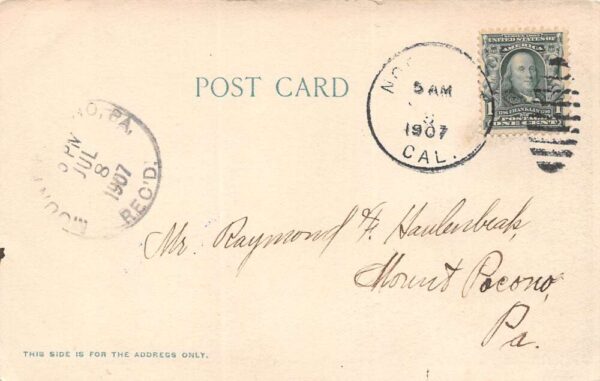 POST CARD
5 AM
1907
CAL.
SERIES 1902
UNITED STATES OF
AMERICA
1 1
FRANKLIN
POSTAGE
ONE CENT
NO, PA.
PM
JUL
8
1907
REC'D.
Mr. Raymond F. Haulenbeak,
Mount Pocono,
Pa.
THIS SIDE IS FOR THE ADDRESS ONLY.